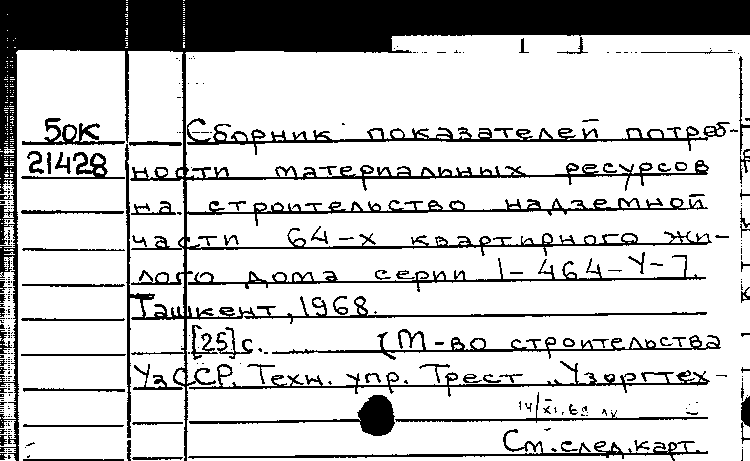 50К
21428
Сборник показателей потреб-
ности материальных ресурсов
на строительство надземной
части 64-х квартирного жи-
лого дома серии 1-464-У-7.
Ташкент, 1968.
[25]с. (М-во строительства
УзССР. Техн. упр. Трест „Узоргтех-
См.след.карт.